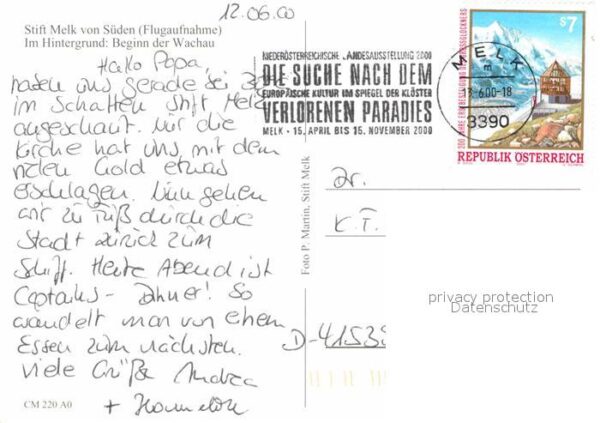 12.06.00
Stift Melk von Süden (Flugaufnahme)
Im Hintergrund: Beginn der Wachau
Hallo Papa,
haben uns gerade bei
im Schatten Stift Melk
angeschaut. Nur die
Kirche hat uns mit dem
vielen Gold etwas
erschlagen. Nun gehen
wir zu Fuß durch die
Stadt zurück zum
Schiff. Heute Abend ist
Captains-Dinner! So
wandelt man von einem
Essen zum nächsten.
Viele Grüße Andrea
+ Hannelore
CM 220 A0
NIEDERÖSTERREICHISCHE LANDESAUSSTELLUNG 2000
DIE SUCHE NACH DEM
EUROPÄISCHE KULTUR IM SPIEGEL DER KLÖSTER
VERLORENEN PARADIES
MELK - 15. APRIL BIS 15. NOVEMBER 2000
MELK
m
6.00-18
3390
S7
200 JAHRE ERSTBESTEIGUNG DES GROSSGLOCKNERS
REPUBLIK ÖSTERREICH
Foto P. Martin, Stift Melk
Dr.
K.T.
D-41539
privacy protection
Datenschutz